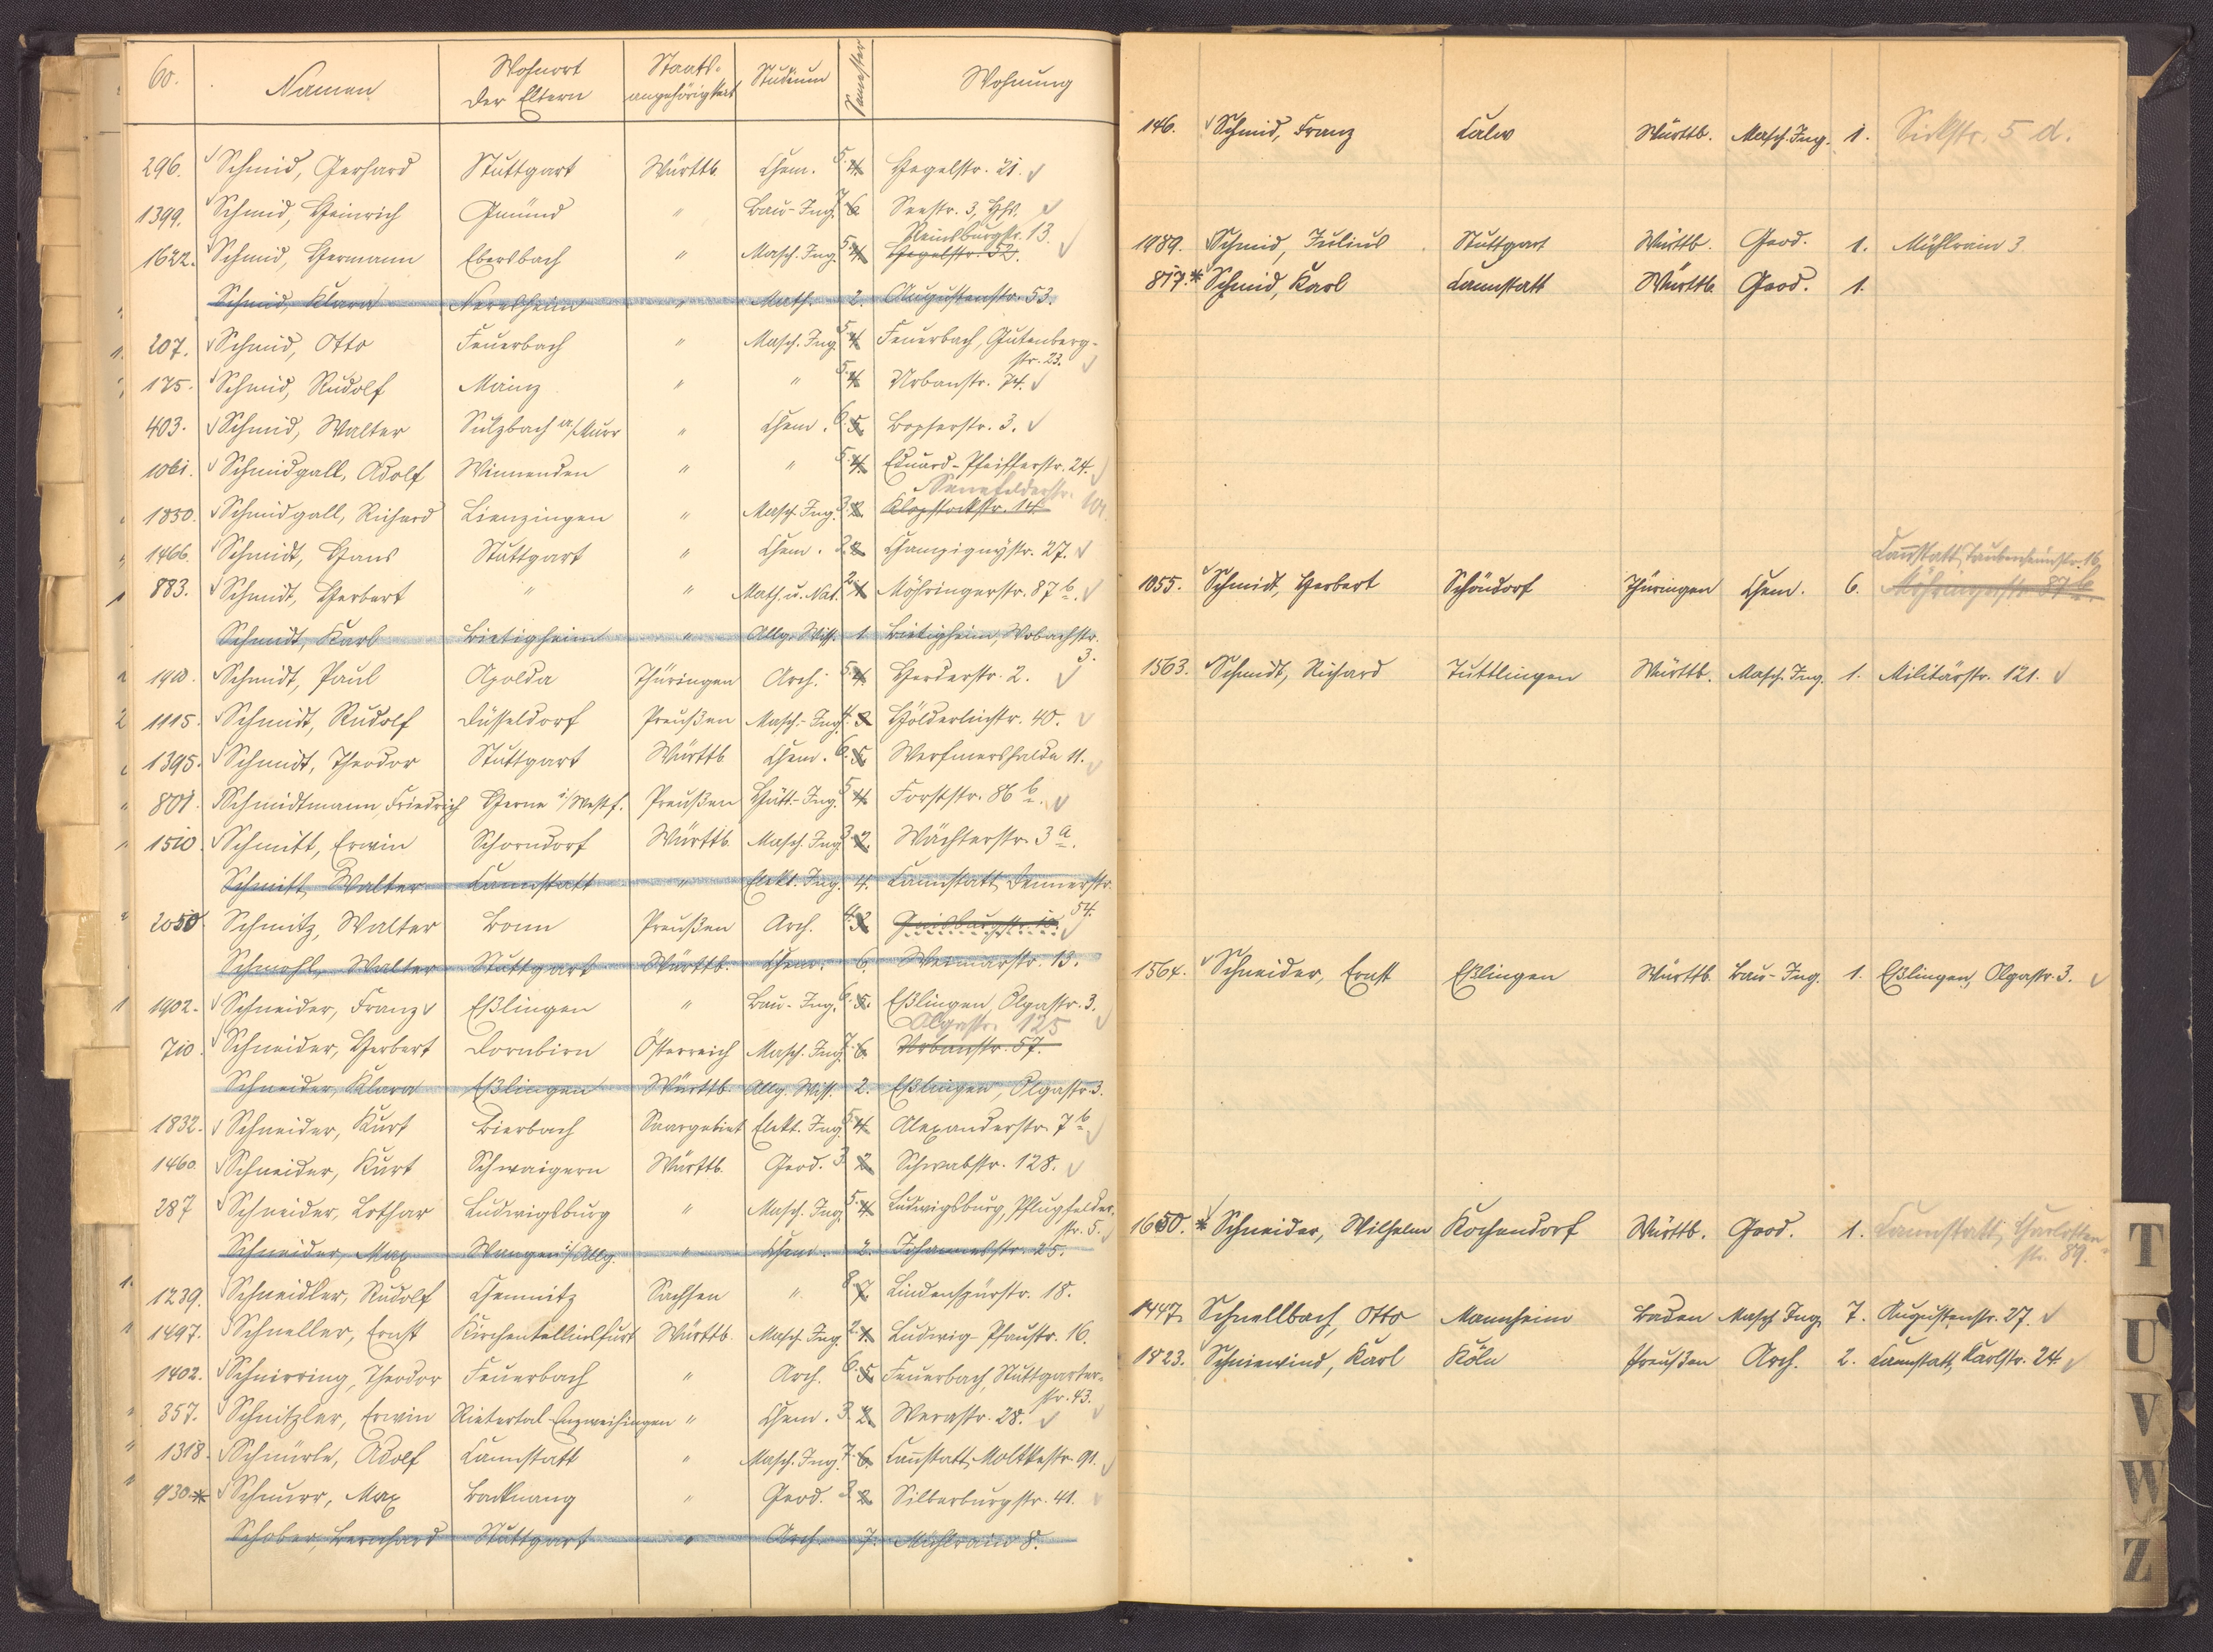 60. Namen Wohnort der Eltern Staats-angehörigkeit Studium Semester Wohnung
296. Schmid, Gerhard Stuttgart Württb. Chem. 5. 4. Hegelstr. 21.
1399. Schmid, Heinrich Gmünd " Bau-Ing. 7. 6. Seestr. 3, Hhs.
Reinsburgstr. 13.
1622. Schmid, Hermann Ebersbach " Masch. Ing. 5. 4. Hegelstr. 52.
Schmid, Klara Neresheim " Math. 2. Augustenstr. 53.
207. Schmid, Otto Feuerbach " Masch. Ing. 5. 4. Feuerbach, Gutenberg-
str. 23.
175. Schmid, Rudolf Mainz " " 5. 4. Urbanstr. 74.
403. Schmid, Walter Sulzbach a/Murr " Chem. 6. 5. Bopserstr. 3.
1061. Schmidgall, Adolf Winnenden " " 5. 4. Eduard-Pfeifferstr. 24.
Senefelderstr. 101.
1830. Schmidgall, Richard Lienzingen " Masch. Ing. 3. 2. Klopstockstr. 14
1466. Schmidt, Hans Stuttgart " Chem. 3. 2. Champignystr. 27.
883. Schmidt, Herbert " " Math. u. Nat. 2. 1. Möhringerstr. 87 b.
Schmidt, Karl Bietigheim " Allg. Wiss. 1. Bietigheim, Wobachstr.
3.
Schmidt, Paul Apolda Thüringen Arch. 5. 4. Herderstr. 2.
1115. Schmidt, Rudolf Düsseldorf Preußen Masch.-Ing. 4. 3. Hölderlinstr. 40.
1395. Schmidt, Theodor Stuttgart Württb. Chem. 6. 5. Werfmershalde 11.
801. Schmidtmann, Friedrich Herne i/Westf. Preußen Hütt.-Ing. 5. 4. Forststr. 86 b.
1510. Schmitt, Erwin Schorndorf Württb. Masch. Ing. 3. 2. Wächterstr. 3 a.
Schmitt, Walter Cannstatt " Elekt. Ing. 4. Cannstatt, Dennerstr.
54.
2050. Schmitz, Walter Bonn Preußen Arch. 4. 3. Gaisburgstr. 10.
Schmohl, Walter Stuttgart Württb. Chem. 6. Weimarstr. 13.
1902. Schneider, Franz Eßlingen " Bau-Ing. 6. 5. Eßlingen, Olgastr. 3.
Olgastr. 125
710. Schneider, Herbert Dornbirn Österreich Masch. Ing. 7. 6. Urbanstr. 57.
Schneider, Klara Eßlingen Württb. Allg. Wiss. 2. Eßlingen, Olgastr. 3.
1832. Schneider, Kurt Bierbach Saargebiet Elekt. Ing. 5. 4. Alexanderstr. 7 b.
1460. Schneider, Kurt Schwaigern Württb. Geod. 3. 2. Schwabstr. 128.
287 Schneider, Lothar Ludwigsburg " Masch. Ing. 5. 4. Ludwigsburg, Pflugfelder-
str. 5.
Schneider, Max Wangen i/Allg. " Chem. 2. Johannesstr. 25.
1239. Schneidler, Rudolf Chemnitz Sachsen " 8. 7. Lindenspürstr. 18.
1497. Schneller, Ernst Kirchentellinsfurt Württb. Masch. Ing. 2. 1. Ludwig-Pfaustr. 16.
1402. Schnirring, Theodor Feuerbach " Arch. 6. 5. Feuerbach, Stuttgarter-
str. 43.
357. Schnitzler, Erwin Rietertal-Enzweihingen " Chem. 3. 2. Werastr. 28.
1318. Schnürle, Adolf Cannstatt " Masch. Ing. 7. 6. Cannstatt, Moltkestr. 91.
930. * Schnurr, Max Backnang " Geod. 3. 2. Silberburgstr. 41.
Schober, Bernhard Stuttgart " Arch. 7. Mühlrain 8.
146. Schmid, Franz Calw Württb. Masch. Ing. 1. Sickstr. 5 d.
1989. Schmid, Julius Stuttgart Württb. Geod. 1. Mühlrain 3
817. * Schmid, Karl Cannstatt Württb. Geod. 1.
Cannstatt, Taubenheimstr. 16
1055. Schmidt, Herbert Schöndorf Thüringen Chem. 6. Möhringerstr. 87 b.
1563. Schmidt, Richard Tuttlingen Württb. Masch. Ing. 1. Militärstr. 121.
1564. Schneider, Ernst Eßlingen Württb. Bau-Ing. 1. Eßlingen, Olgastr. 3.
1650. * Schneider, Wilhelm Kochendorf Württb. Geod. 1. Cannstatt, Charlotten-
str. 89.
1447. Schnellbach, Otto Mannheim Baden Masch. Ing. 7. Augustenstr. 27.
1823. Schniewind, Karl Köln Preußen Arch. 2. Cannstatt, Karlstr. 24.
T
U
V
W
Z